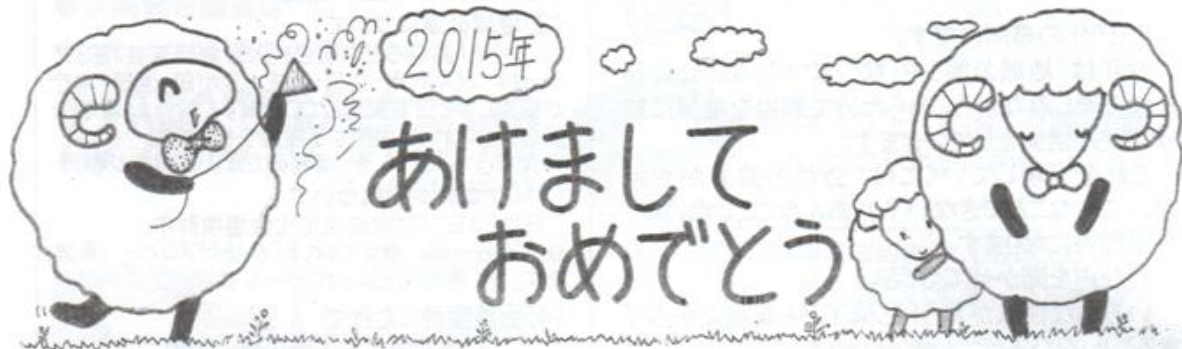 2015年
あけまして
おめでとう